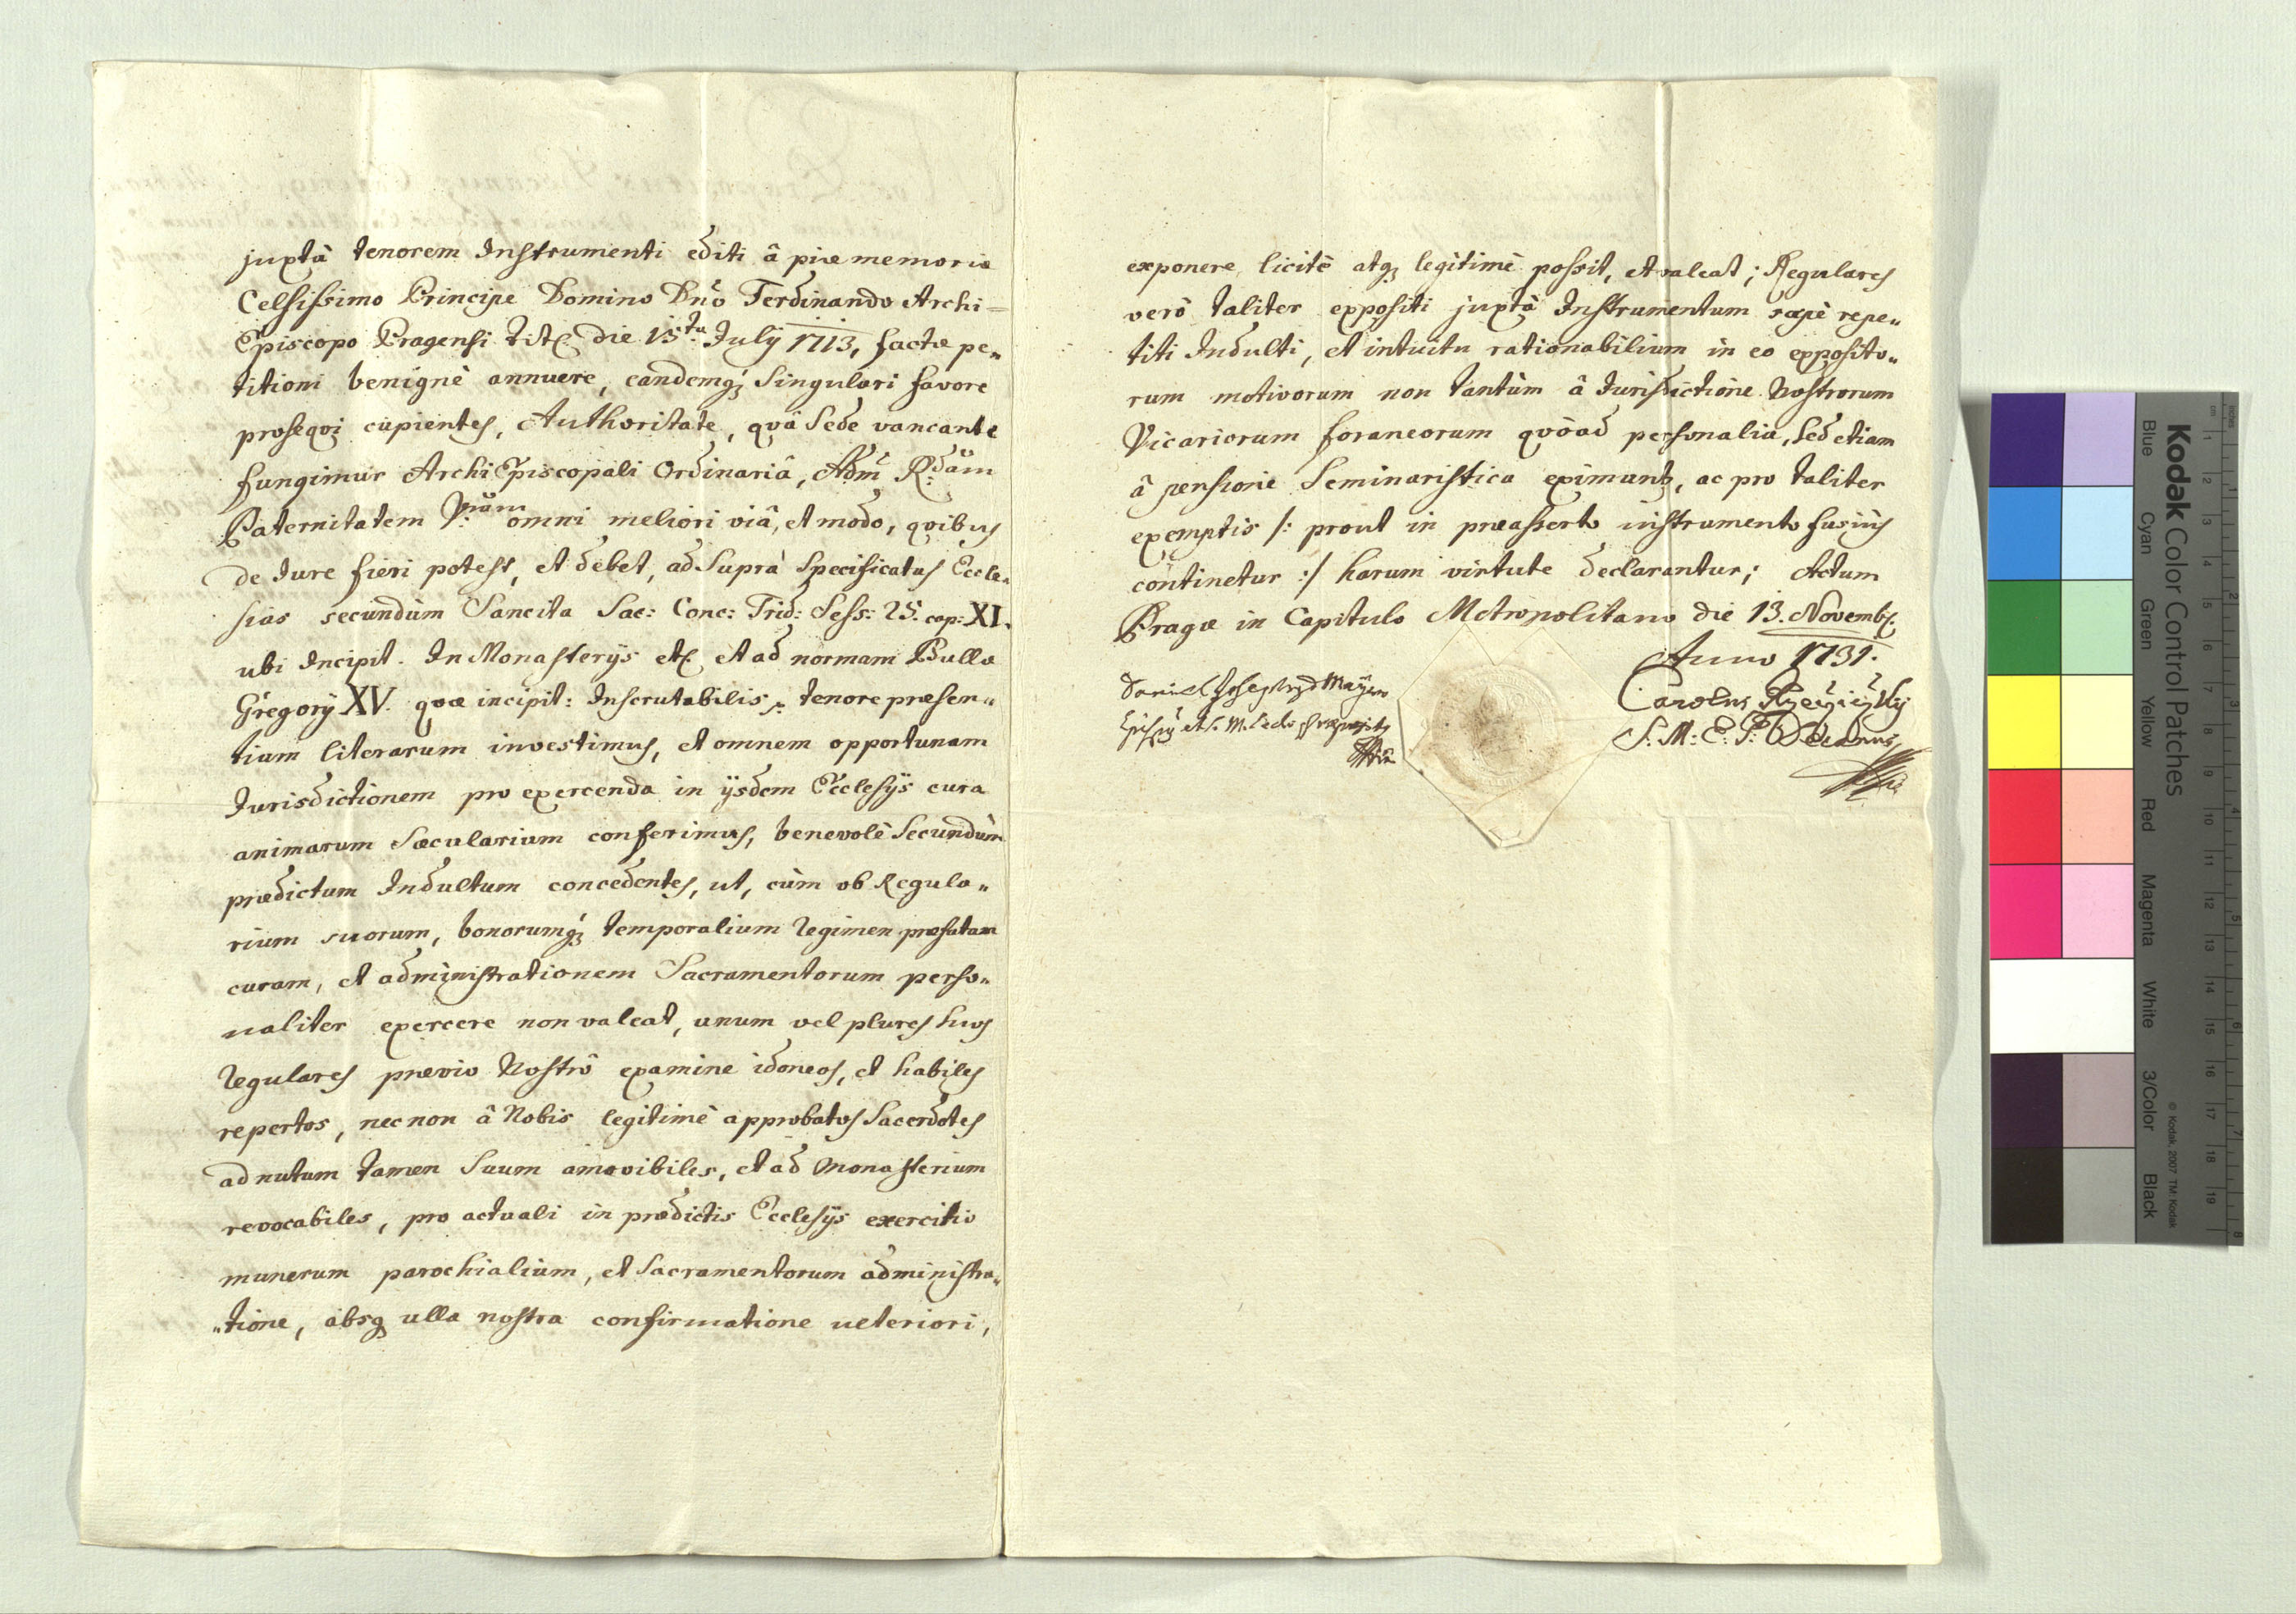 juxtà tenorem Instrumenti editi â piæ memoriæ
Celsissimo Principe Domino Dnō Ferdinando Archi=
Episcopo Pragensi tit. die 15ta July 1713, factæ pe„
titioni benignè annuere, eandemq; Singulari favore
proseqvi cupientes, Authoritate, qvâ Sede vancante
fungimur ArchiEpiscopali Ordinariâ, Adm R:dām
Paternitatem V:rām omni meliori viâ, et modo, qvibus
de Jure fieri potest, et debet, ad Suprà Specificatas Eccle„
sias secundùm Sancita Sac: Conc: Trid: Sess: 25. cap: XI.
ubi Incipit. In Monasterijs etc. et ad normam Bullæ
Gregorij XV. qvæ incipit: Inscrutabilis tenore præsen„
tium literarum investimus, et omnem opportunam
Jurisdictionem pro exercenda in ijsdem Ecclesijs cura
animarum Sæcularium conferimus, benevolè Secundùm
prædictum Indultum concedentes, ut, cùm ob Regula„
rium suorum, bonorumq; temporalium regimen præfatam
curam, et administrationem Sacramentorum perso„
naliter exercere non valeat, unum vel plures suos
Regulares prævio Nostrô examine idoneos, et habiles
repertos, nec non â Nobis legitimè approbatos Sacerdotes
ad nutum tamen Suum amovibiles, et ad Monasterium
revocabiles, pro actuali in prædictis Ecclesijs exercitio
munerum parochialium, et Sacramentorum administra„
„tione, absq; ulla nostra confirmatione ulteriori,
exponere licitè atq; legitimè possit, et valeat; Regulares
verò taliter expositi juxtà Instrumentum sæpè repe„
titi Indulti, et intuitu rationabilium in eo exposito„
rum motivorum non tantùm â Jurisdictione Nostrorum
Vicariorum foraneorum qvòad personalia, Sed etiam
â pensione Seminaristica eximunt, ac pro taliter
exemptis /: prout in præasserto instrumento fusiùs
continetur :/ harum virtute declarantur; Actum
Pragæ in Capitulo Metropolitano die 13. Novemb.
Anno 1731.
Daniel Joseph Mayer
et S. M. Eccle præposit
Carolus
S: M: E: P: Decanus